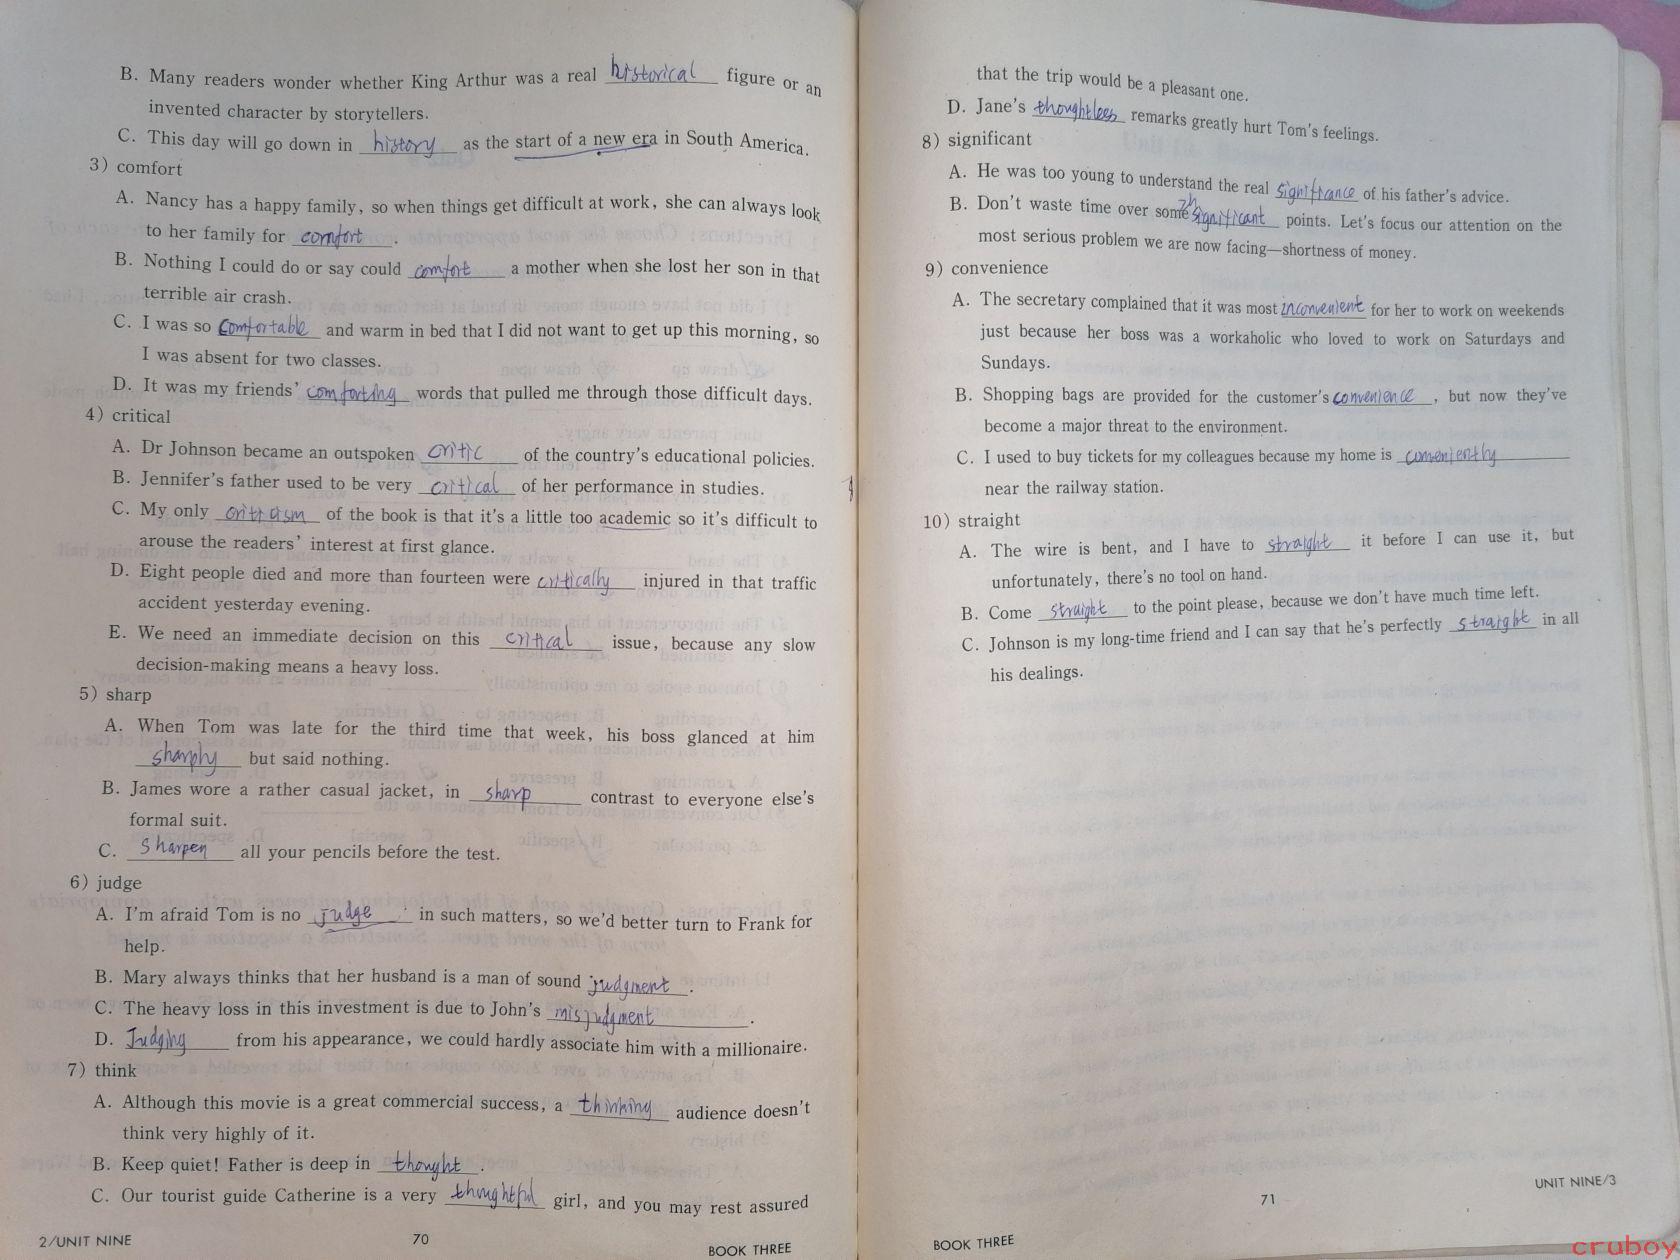 B. Many readers wonder whether King Arthur was a real historical figure or an
invented character by storytellers.
C. This day will go down in history as the start of a new era in South America.
3) comfort
A. Nancy has a happy family, so when things get difficult at work, she can always look
to her family for comfort .
B. Nothing I could do or say could comfort a mother when she lost her son in that
terrible air crash.
C. I was so comfortable and warm in bed that I did not want to get up this morning, so
I was absent for two classes.
D. It was my friends' comforting words that pulled me through those difficult days.
4) critical
A. Dr Johnson became an outspoken critic of the country's educational policies.
B. Jennifer's father used to be very critical of her performance in studies.
C. My only criticism of the book is that it's a little too academic so it's difficult to
arouse the readers' interest at first glance.
D. Eight people died and more than fourteen were critically injured in that traffic
accident yesterday evening.
E. We need an immediate decision on this critical issue, because any slow
decision-making means a heavy loss.
5) sharp
A. When Tom was late for the third time that week, his boss glanced at him
sharply but said nothing.
B. James wore a rather casual jacket, in sharp contrast to everyone else's
formal suit.
C. Sharpen all your pencils before the test.
6) judge
A. I'm afraid Tom is no judge in such matters, so we'd better turn to Frank for
help.
B. Mary always thinks that her husband is a man of sound judgment .
C. The heavy loss in this investment is due to John's misjudgment .
D. Judging from his appearance, we could hardly associate him with a millionaire.
7) think
A. Although this movie is a great commercial success, a thinking audience doesn't
think very highly of it.
B. Keep quiet! Father is deep in thought .
C. Our tourist guide Catherine is a very thoughtful girl, and you may rest assured
2/UNIT NINE
70
BOOK THREE
that the trip would be a pleasant one.
D. Jane's thoughtless remarks greatly hurt Tom's feelings.
8) significant
A. He was too young to understand the real significance of his father's advice.
B. Don't waste time over some insignificant points. Let's focus our attention on the
most serious problem we are now facing—shortness of money.
9) convenience
A. The secretary complained that it was most inconvenient for her to work on weekends
just because her boss was a workaholic who loved to work on Saturdays and
Sundays.
B. Shopping bags are provided for the customer's convenience , but now they've
become a major threat to the environment.
C. I used to buy tickets for my colleagues because my home is conveniently
near the railway station.
10) straight
A. The wire is bent, and I have to straight it before I can use it, but
unfortunately, there's no tool on hand.
B. Come straight to the point please, because we don't have much time left.
C. Johnson is my long-time friend and I can say that he's perfectly straight in all
his dealings.
BOOK THREE
71
UNIT NINE/3
cruboy